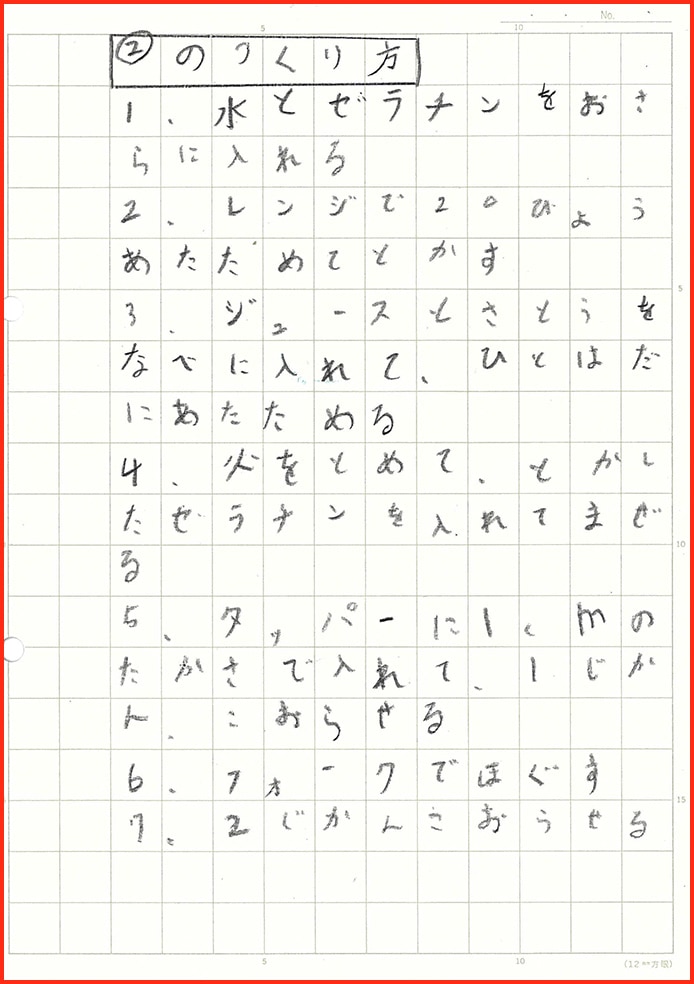 No.
5
10
②のつくり方
1、水とゼラチンをおさ
らに入れる
2、レンジで20びょう
あたためてとかす
3、ジュースとさとうを
なべに入れて、ひとはだ
にあたためる
5
4、火をとめて、とかし
たぜラチンを入れてまぜ
る
10
5、タッパーに1cmの
たかさで入れて、1じか
ん、こおらせる
6、フォークでほぐす
7、2じかんこおらせる
15
5
10
(12㎜方眼)